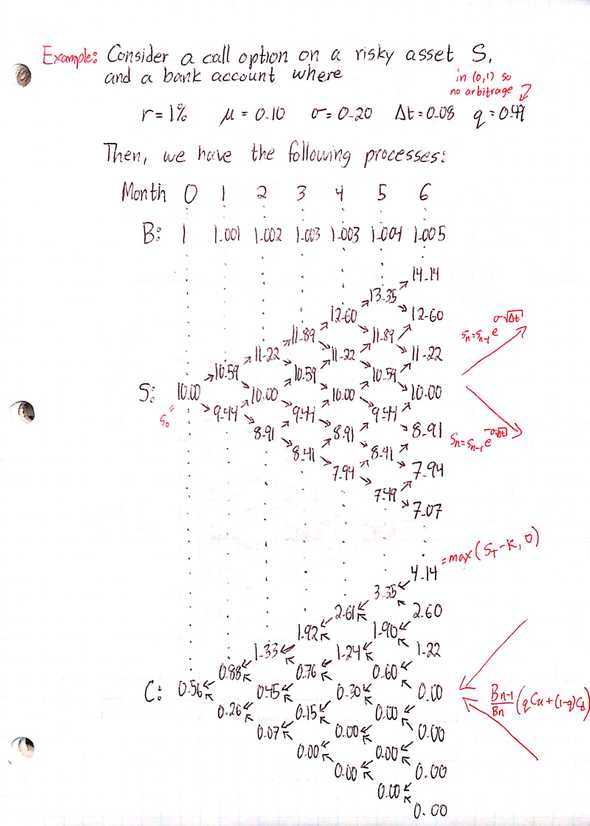 Example: Consider a call option on a risky asset S,
and a bank account where
in (0,1) so
no arbitrage
r = 1% μ = 0.10 σ = 0.20 Δt = 0.08 q = 0.49
Then, we have the following processes:
Month 0 1 2 3 4 5 6
B: 1 1.001 1.002 1.003 1.003 1.004 1.005
14.14
13.35
12.60 12.60
11.89 11.89
Sn = Sn-1 e^σ√Δt
11.22 11.22 11.22
10.59 10.59 10.59
S: 10.00 10.00 10.00 10.00
S0 =
9.44 9.44 9.44
8.91 8.91 8.91
Sn = Sn-1 e^-σ√Δt
8.41 8.41
7.94 7.94
7.49
7.07
= max(ST - K, 0)
4.14
3.35
2.61 2.60
1.92 1.90
1.33 1.24 1.22
0.88 0.76 0.60
C: 0.56 0.45 0.30 0.00
Bn-1/Bn (q Cu + (1-q) Cd)
0.26 0.15 0.00
0.07 0.00 0.00
0.00 0.00
0.00 0.00
0.00
0.00